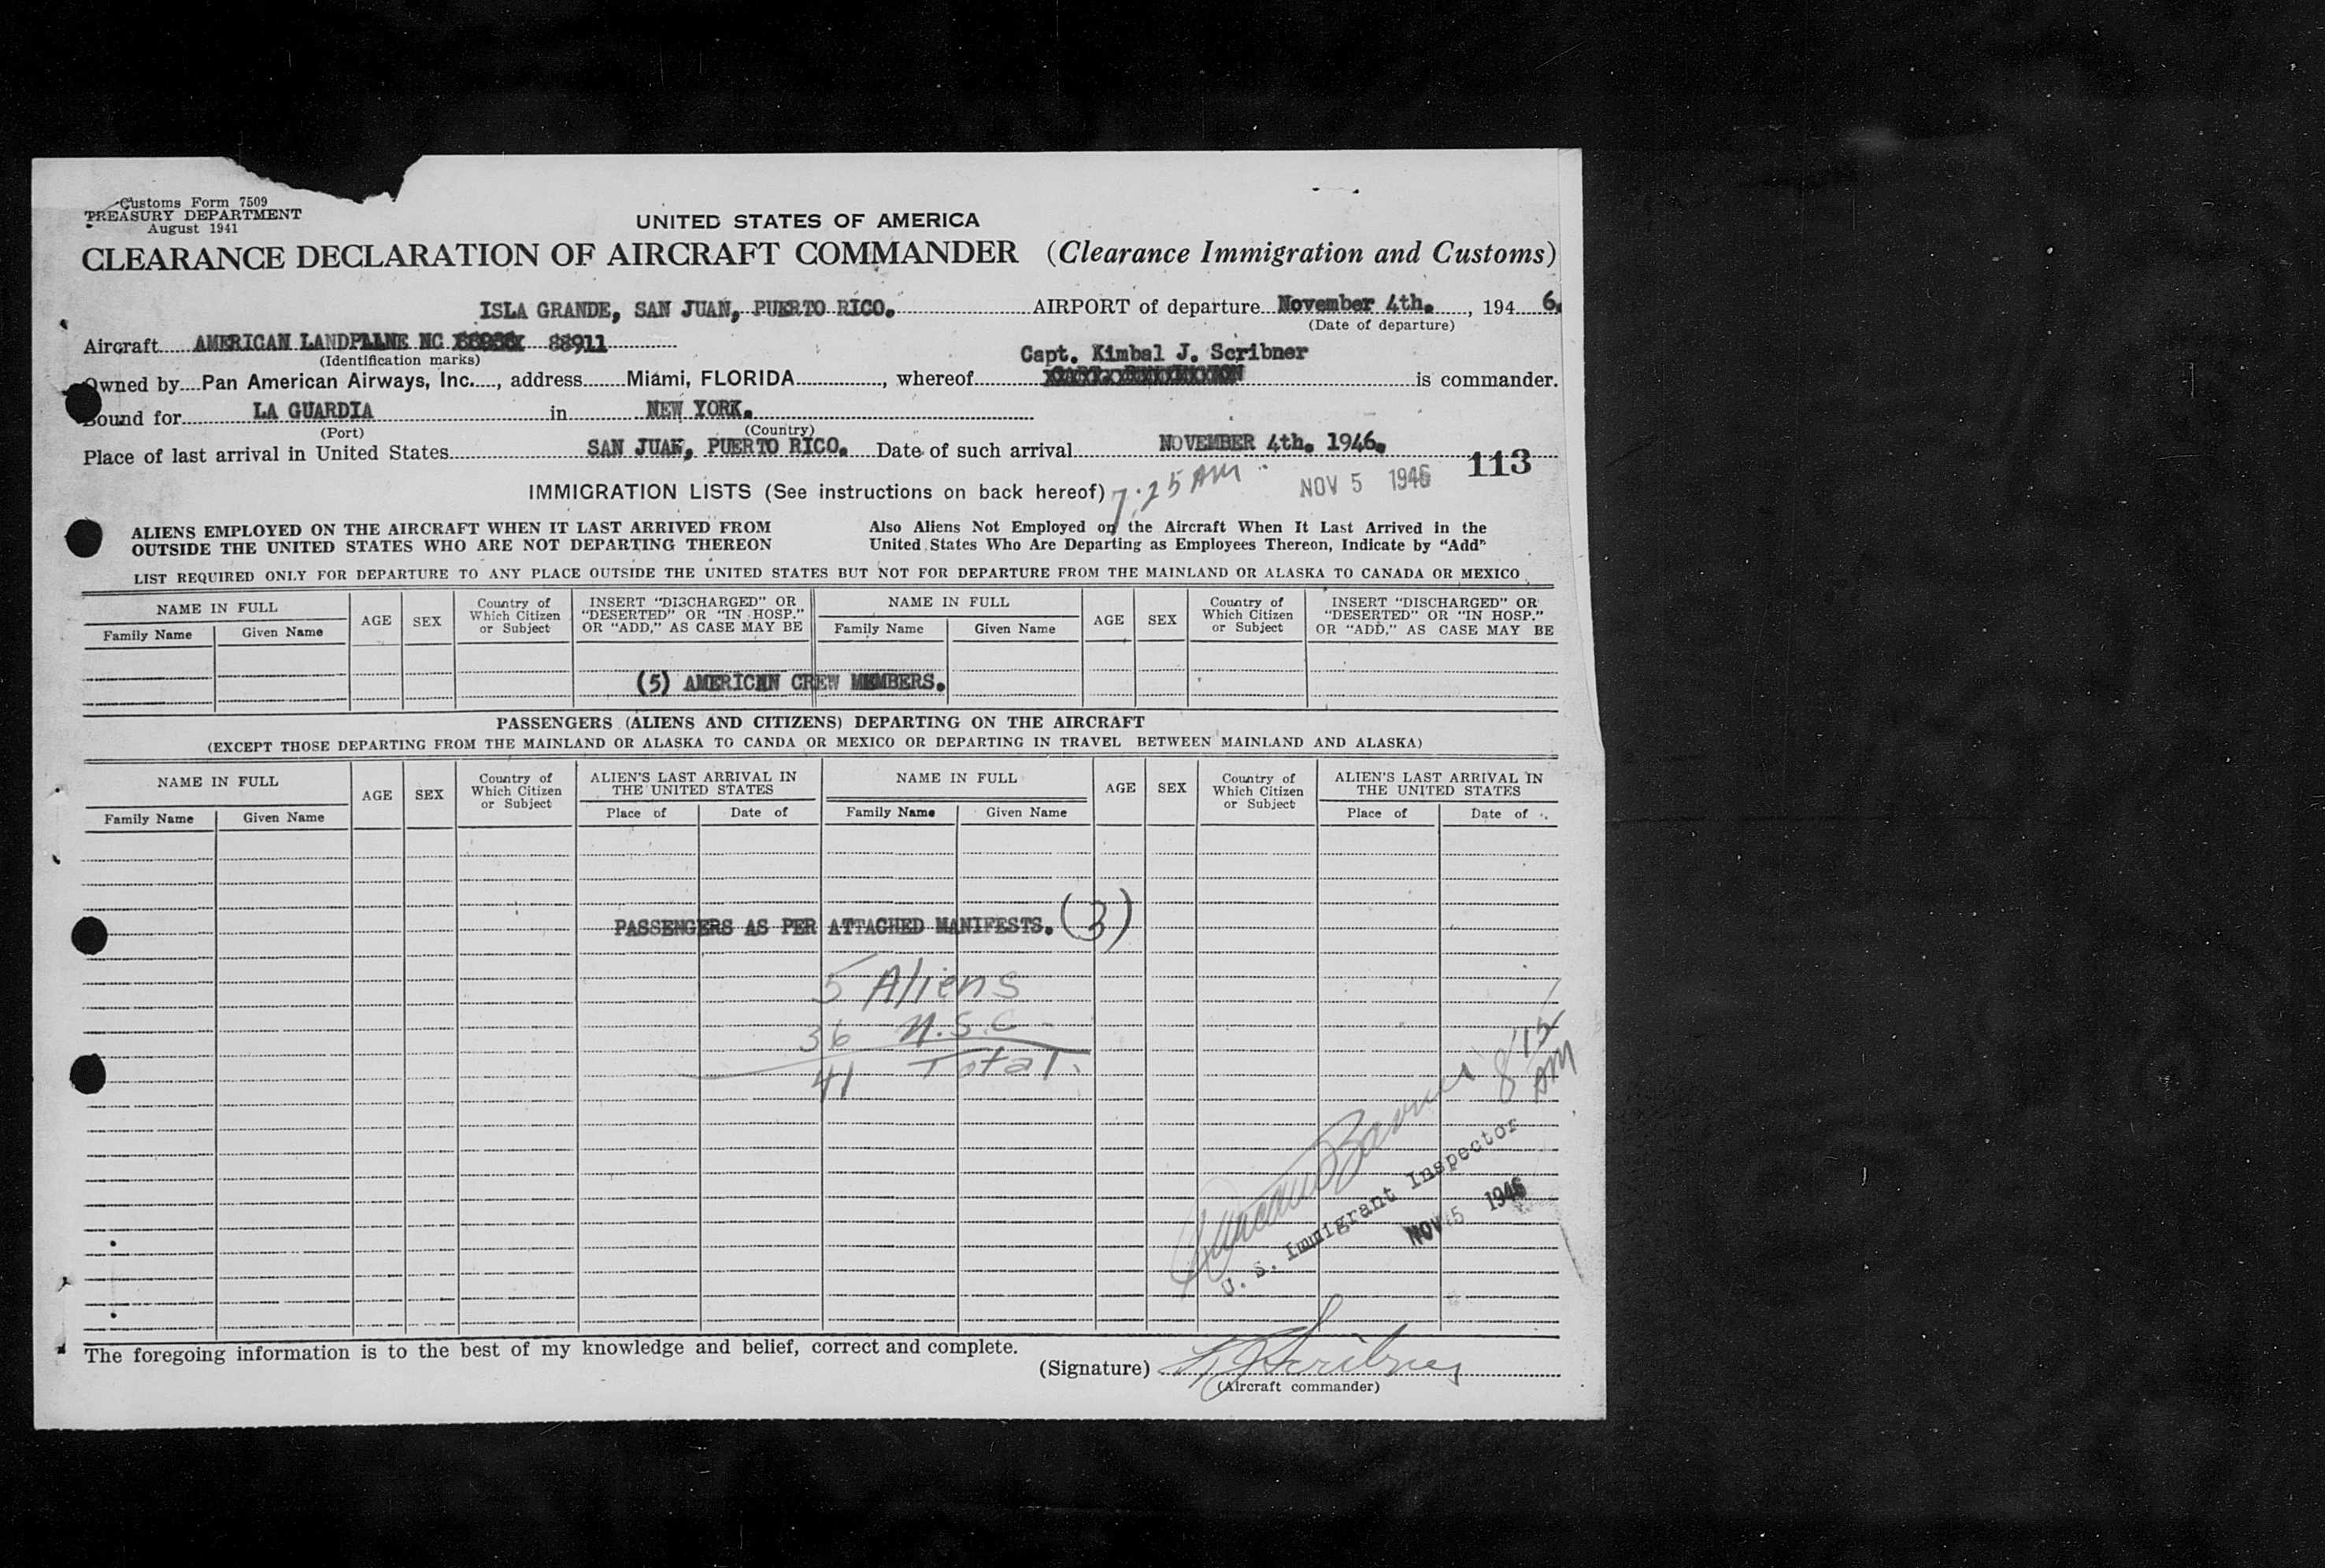 Customs Form 7509
TREASURY DEPARTMENT
August 1941
UNITED STATES OF AMERICA
CLEARANCE DECLARATION OF AIRCRAFT COMMANDER (Clearance Immigration and Customs)
ISLA GRANDE, SAN JUAN, PUERTO RICO. AIRPORT of departure November 4th. , 194 6.
(Date of departure)
Aircraft AMERICAN LANDPLANE NC 88911
(Identification marks)
Capt. Kimbal J. Scribner
Owned by Pan American Airways, Inc. , address Miami, FLORIDA , whereof is commander.
Bound for LA GUARDIA in NEW YORK.
(Port) (Country)
Place of last arrival in United States SAN JUAN, PUERTO RICO. Date of such arrival NOVEMBER 4th. 1946.
113
IMMIGRATION LISTS (See instructions on back hereof) 7:25 AM NOV 5 1946
ALIENS EMPLOYED ON THE AIRCRAFT WHEN IT LAST ARRIVED FROM
OUTSIDE THE UNITED STATES WHO ARE NOT DEPARTING THEREON
Also Aliens Not Employed on the Aircraft When It Last Arrived in the
United States Who Are Departing as Employees Thereon, Indicate by "Add"
LIST REQUIRED ONLY FOR DEPARTURE TO ANY PLACE OUTSIDE THE UNITED STATES BUT NOT FOR DEPARTURE FROM THE MAINLAND OR ALASKA TO CANADA OR MEXICO
NAME IN FULL AGE SEX Country of Which Citizen or Subject INSERT "DISCHARGED" OR "DESERTED" OR "IN HOSP." OR "ADD," AS CASE MAY BE NAME IN FULL AGE SEX Country of Which Citizen or Subject INSERT "DISCHARGED" OR "DESERTED" OR "IN HOSP." OR "ADD," AS CASE MAY BE
Family Name Given Name Family Name Given Name
(5) AMERICAN CREW MEMBERS.
PASSENGERS (ALIENS AND CITIZENS) DEPARTING ON THE AIRCRAFT
(EXCEPT THOSE DEPARTING FROM THE MAINLAND OR ALASKA TO CANDA OR MEXICO OR DEPARTING IN TRAVEL BETWEEN MAINLAND AND ALASKA)
NAME IN FULL AGE SEX Country of Which Citizen or Subject ALIEN'S LAST ARRIVAL IN THE UNITED STATES NAME IN FULL AGE SEX Country of Which Citizen or Subject ALIEN'S LAST ARRIVAL IN THE UNITED STATES
Family Name Given Name Place of Date of Family Name Given Name Place of Date of
PASSENGERS AS PER ATTACHED MANIFESTS. (3)
5 Aliens
36 U.S.C
41 Total.
8:15 AM
U. S. Immigrant Inspector
NOV 5 1946
The foregoing information is to the best of my knowledge and belief, correct and complete.
(Signature) K J Scribner
(Aircraft commander)